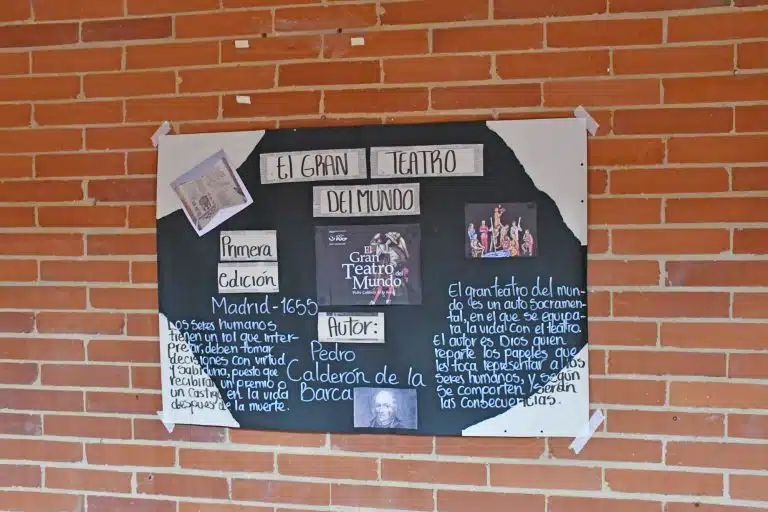 El GRAN TEATRO
DEl MUNDO
Primera
Edición
Madrid-1655
El
Gran
Teatro
del
Mundo
Autor:
Pedro
Calderón de la
Barca
Los seres humanos
tienen un rol que inter-
pretar, deben tomar
decisiones con virtud
y sabiduria, puesto que
recibirán un premio o
un castigo en la vida
después de la muerte.
El gran teatro del mun-
do es un auto sacramen-
tal, en el que se equipa-
ra la vida con el teatro.
El autor es Dios quien
reparte los papeles que
les toca representar a los
seres humanos, y según
se comporten, serán
las consecuencias.